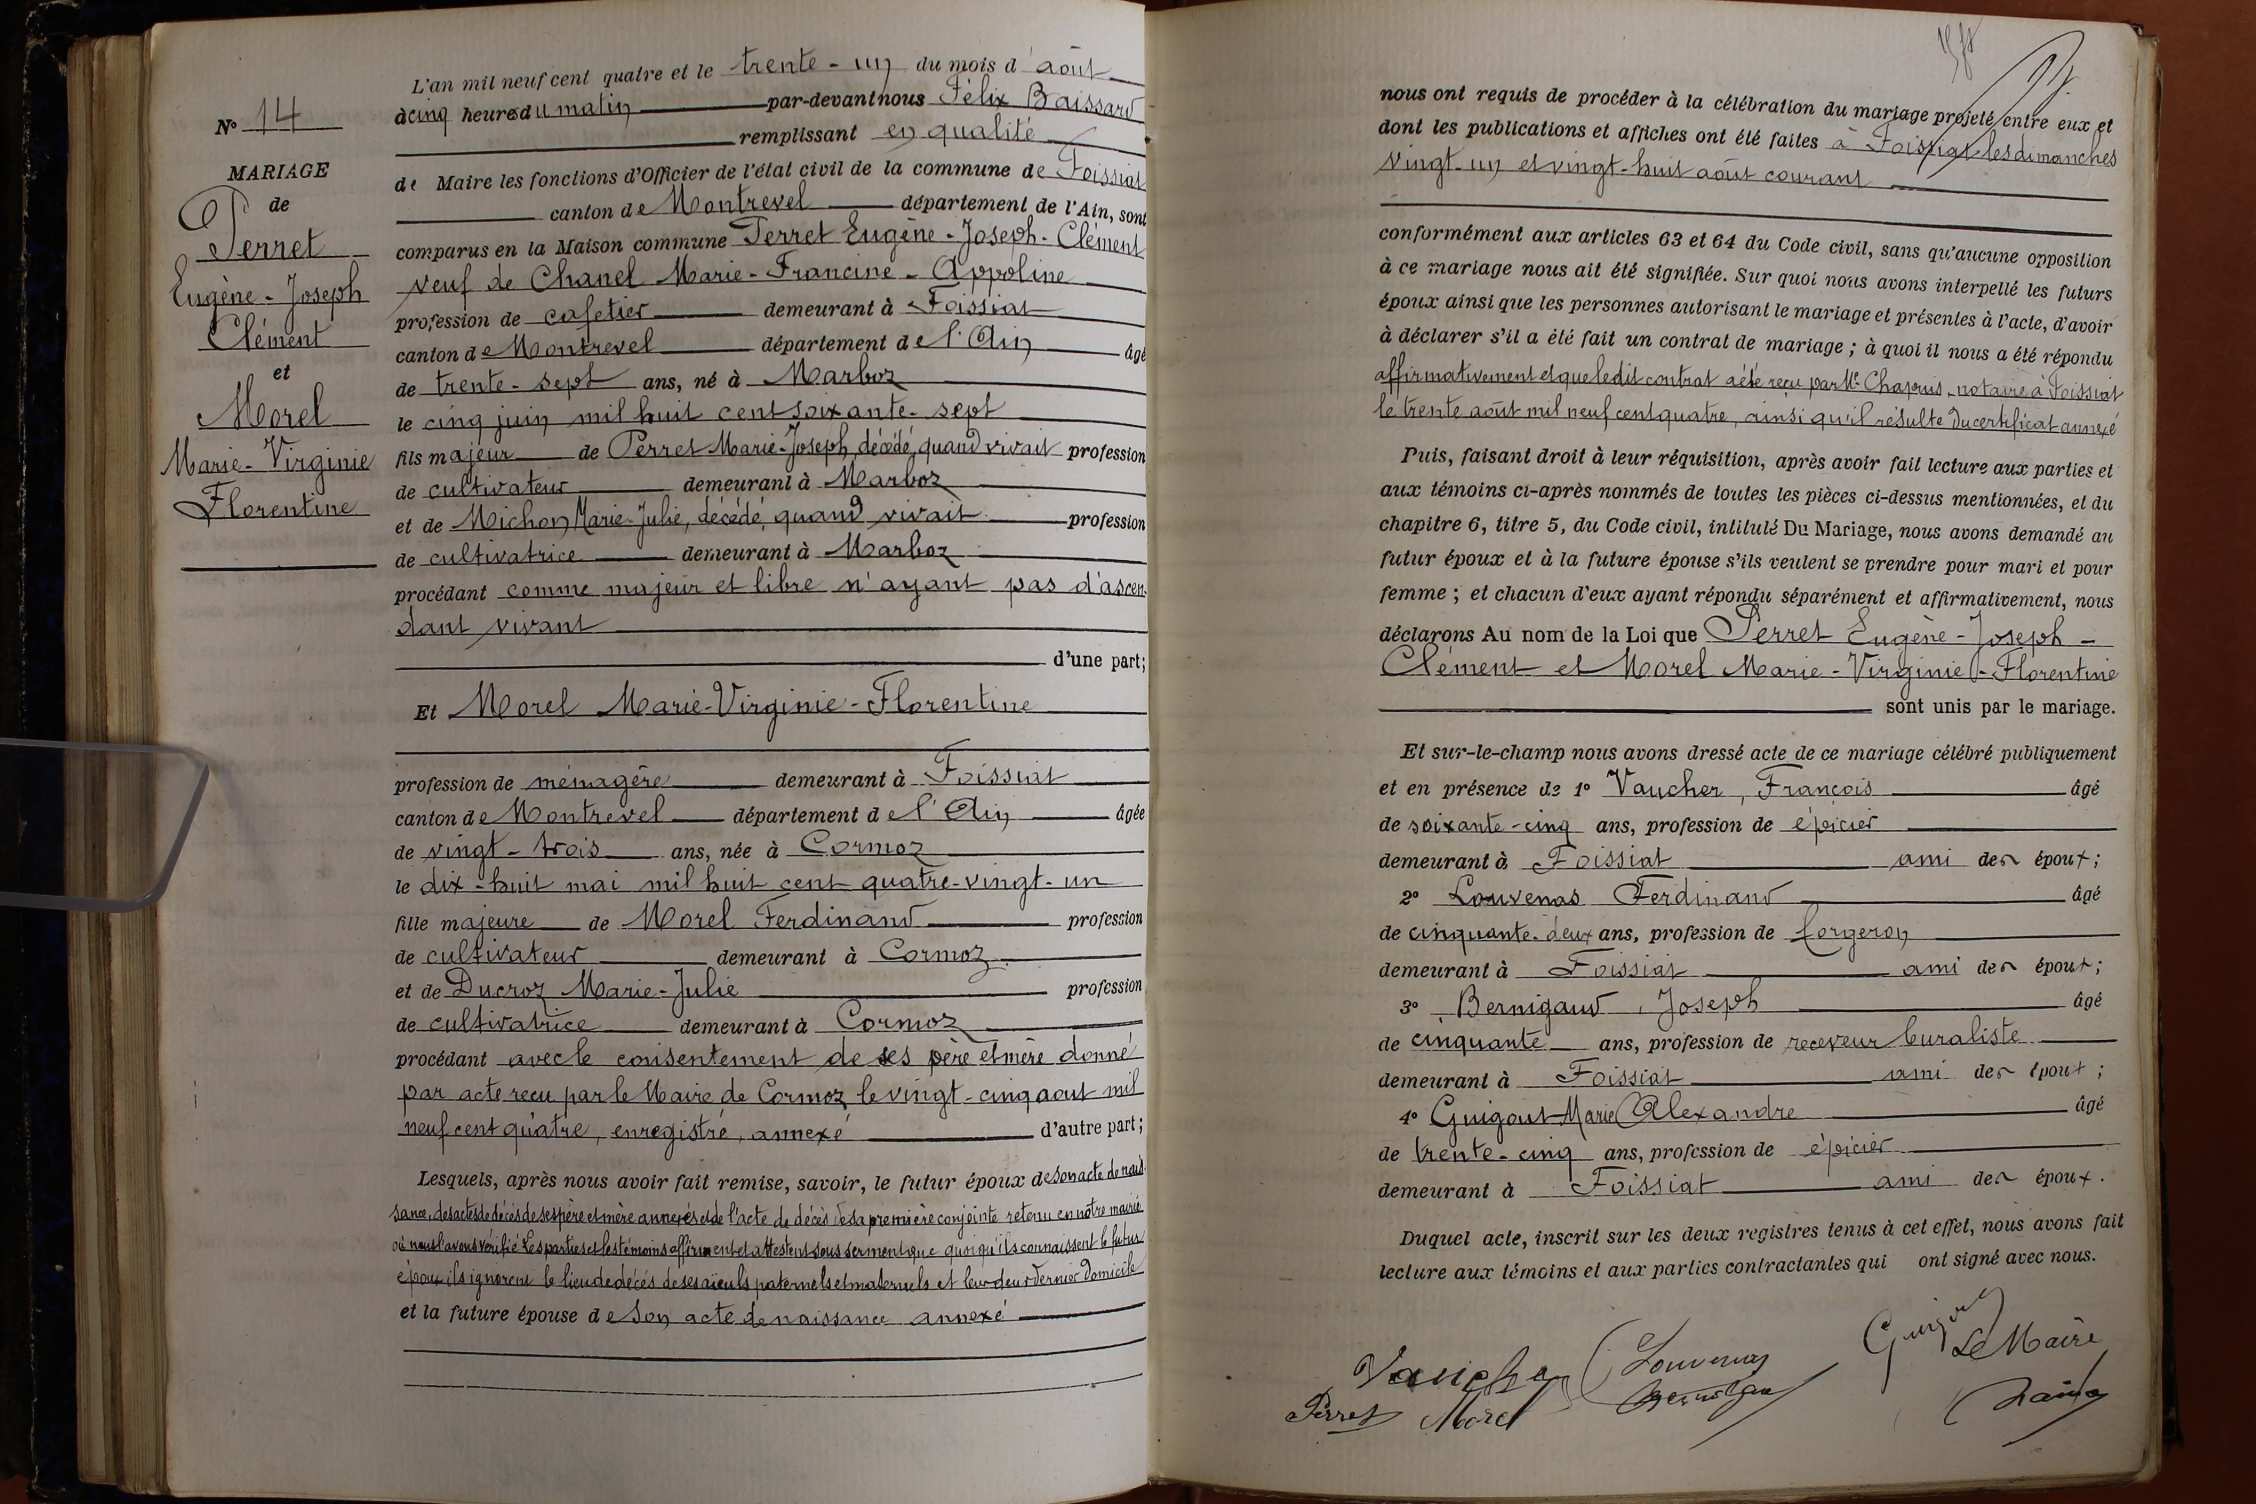 N° 14
MARIAGE
de
Perret
Eugène-Joseph
Clément
et
Morel
Marie-Virginie
Florentine
L'an mil neuf cent quatre et le trente-un du mois d'août
à cinq heures du matin par-devant nous Félix Baissard
remplissant en qualité
de Maire les fonctions d'Officier de l'état civil de la commune de Foissiat
canton de Montrevel département de l'Ain, sont
comparus en la Maison commune Perret Eugène-Joseph-Clément
veuf de Chanel Marie-Francine-Appoline
profession de cafetier demeurant à Foissiat
canton de Montrevel département de l'Ain âgé
de trente-sept ans, né à Marboz
le cinq juin mil huit cent soixante-sept
fils majeur de Perret Marie-Joseph, décédé, quand vivait profession
de cultivateur demeurant à Marboz
et de Michon Marie-Julie, décédé, quand vivait profession
de cultivatrice demeurant à Marboz
procédant comme majeur et libre n'ayant pas d'ascen-
dant vivant
d'une part;
Et Morel Marie-Virginie-Florentine
profession de ménagère demeurant à Foissiat
canton de Montrevel département de l'Ain âgée
de vingt-trois ans, née à Cormoz
le dix-huit mai mil huit cent quatre-vingt-un
fille majeure de Morel Ferdinand profession
de cultivateur demeurant à Cormoz
et de Ducroz Marie-Julie profession
de cultivatrice demeurant à Cormoz
procédant avec le consentement de ses père et mère donné
par acte reçu par le Maire de Cormoz le vingt-cinq aout mil
neuf cent quatre, enregistré, annexé d'autre part;
Lesquels, après nous avoir fait remise, savoir, le futur époux de son acte de nais-
sance, des actes de décès de ses père et mère annexés et de l'acte de décès de sa première conjointe retenu en notre mairie
où nous l'avons vérifié Les parties et les témoins affirment et attestent sous serment que quoiqu'ils connaissent le futur
époux ils ignorent le lieu de décès de ses aïeuls paternels et maternels et leur dernier domicile
et la future épouse de son acte de naissance annexé
nous ont requis de procéder à la célébration du mariage projeté entre eux et
dont les publications et affiches ont été faites à Foissiat les dimanches
vingt-un et vingt-huit août courant
conformément aux articles 63 et 64 du Code civil, sans qu'aucune opposition
à ce mariage nous ait été signifiée. Sur quoi nous avons interpellé les futurs
époux ainsi que les personnes autorisant le mariage et présentes à l'acte, d'avoir
à déclarer s'il a été fait un contrat de mariage; à quoi il nous a été répondu
affirmativement et que ledit contrat a été reçu par Me Chapuis, notaire à Foissiat
le trente août mil neuf cent quatre, ainsi qu'il résulte du certificat annexé
Puis, faisant droit à leur réquisition, après avoir fait lecture aux parties et
aux témoins ci-après nommés de toutes les pièces ci-dessus mentionnées, et du
chapitre 6, titre 5, du Code civil, intitulé Du Mariage, nous avons demandé au
futur époux et à la future épouse s'ils veulent se prendre pour mari et pour
femme; et chacun d'eux ayant répondu séparément et affirmativement, nous
déclarons Au nom de la Loi que Perret Eugène-Joseph-
Clément et Morel Marie-Virginie-Florentine
sont unis par le mariage.
Et sur-le-champ nous avons dressé acte de ce mariage célébré publiquement
et en présence de 1° Vaucher, François âgé
de soixante-cinq ans, profession de épicier
demeurant à Foissiat ami des époux;
2° Louvenas Ferdinand âgé
de cinquante-deux ans, profession de forgeron
demeurant à Foissiat ami des époux;
3° Bernigaud, Joseph âgé
de cinquante ans, profession de receveur buraliste
demeurant à Foissiat ami des époux;
4° Guigout Marie Alexandre âgé
de trente-cinq ans, profession de épicier
demeurant à Foissiat ami des époux.
Duquel acte, inscrit sur les deux registres tenus à cet effet, nous avons fait
lecture aux témoins et aux parties contractantes qui ont signé avec nous.
Vaucher Louvenas Le Maire
Perret Morel